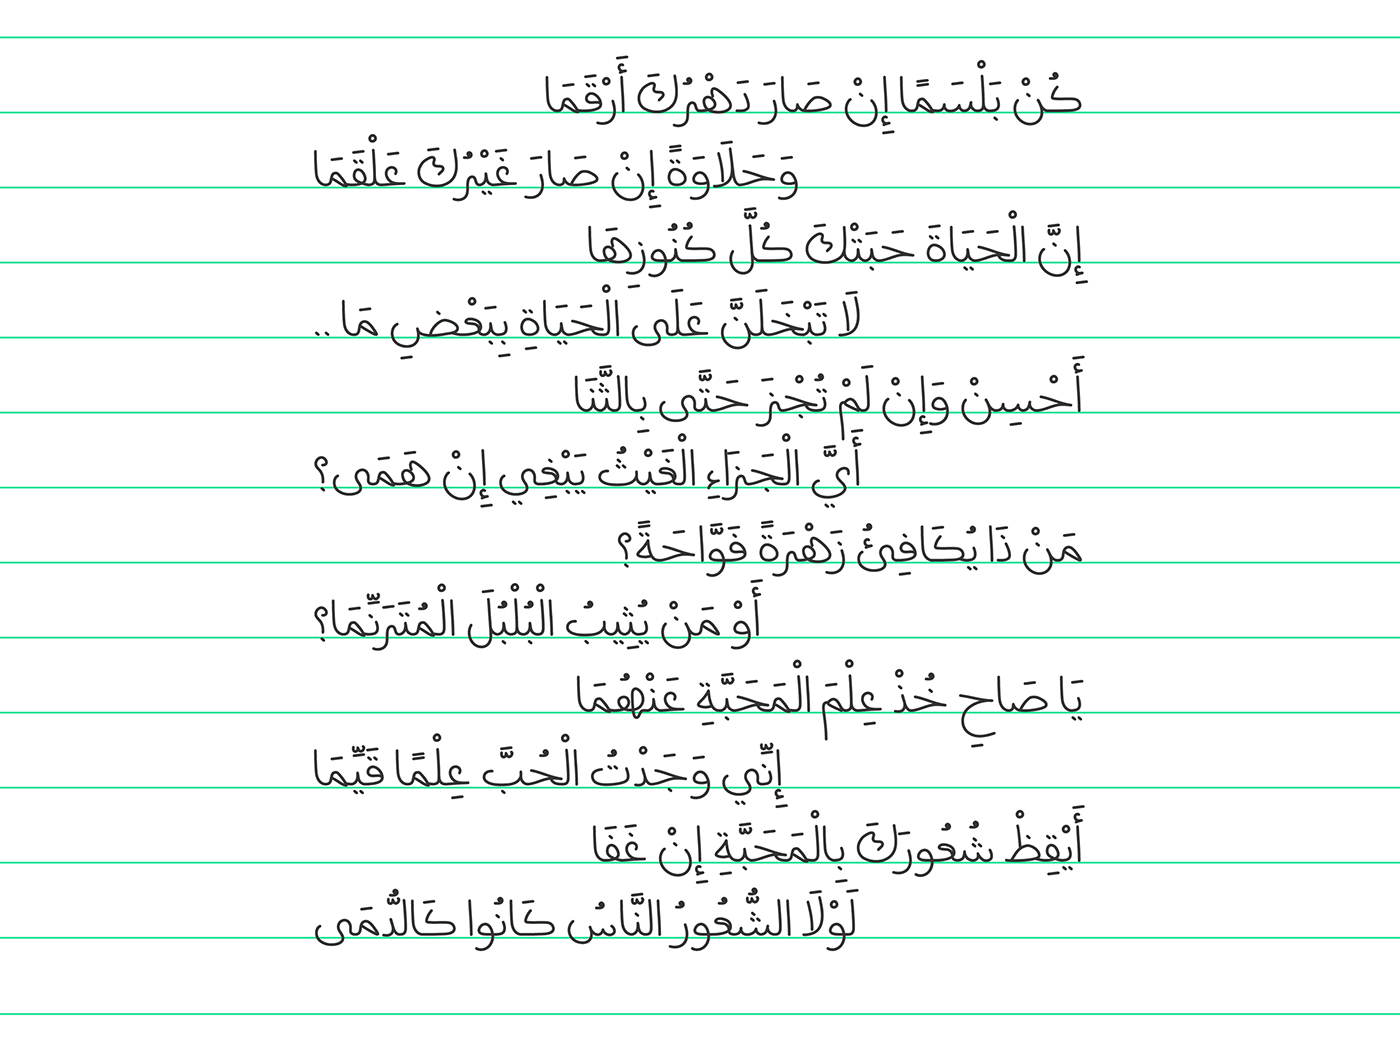 كُنْ بَلْسَمًا إِنْ صَارَ دَهْرُكَ أَرْقَمَا
وَحَلَاوَةً إِنْ صَارَ غَيْرُكَ عَلْقَمَا
إِنَّ الْحَيَاةَ حَبَتْكَ كُلَّ كُنُوزِهَا
لَا تَبْخَلَنَّ عَلَى الْحَيَاةِ بِبَعْضِ مَا ..
أَحْسِنْ وَإِنْ لَمْ تُجْزَ حَتَّى بِالثَّنَا
أَيَّ الْجَزَاءِ الْغَيْثُ يَبْغِي إِنْ هَمَى؟
مَنْ ذَا يُكَافِئُ زَهْرَةً فَوَّاحَةً؟
أَوْ مَنْ يُثِيبُ الْبُلْبُلَ الْمُتَرَنِّمَا؟
يَا صَاحِ خُذْ عِلْمَ الْمَحَبَّةِ عَنْهُمَا
إِنِّي وَجَدْتُ الْحُبَّ عِلْمًا قَيِّمَا
أَيْقِظْ شُعُورَكَ بِالْمَحَبَّةِ إِنْ غَفَا
لَوْلَا الشُّعُورُ النَّاسُ كَانُوا كَالدُّمَى